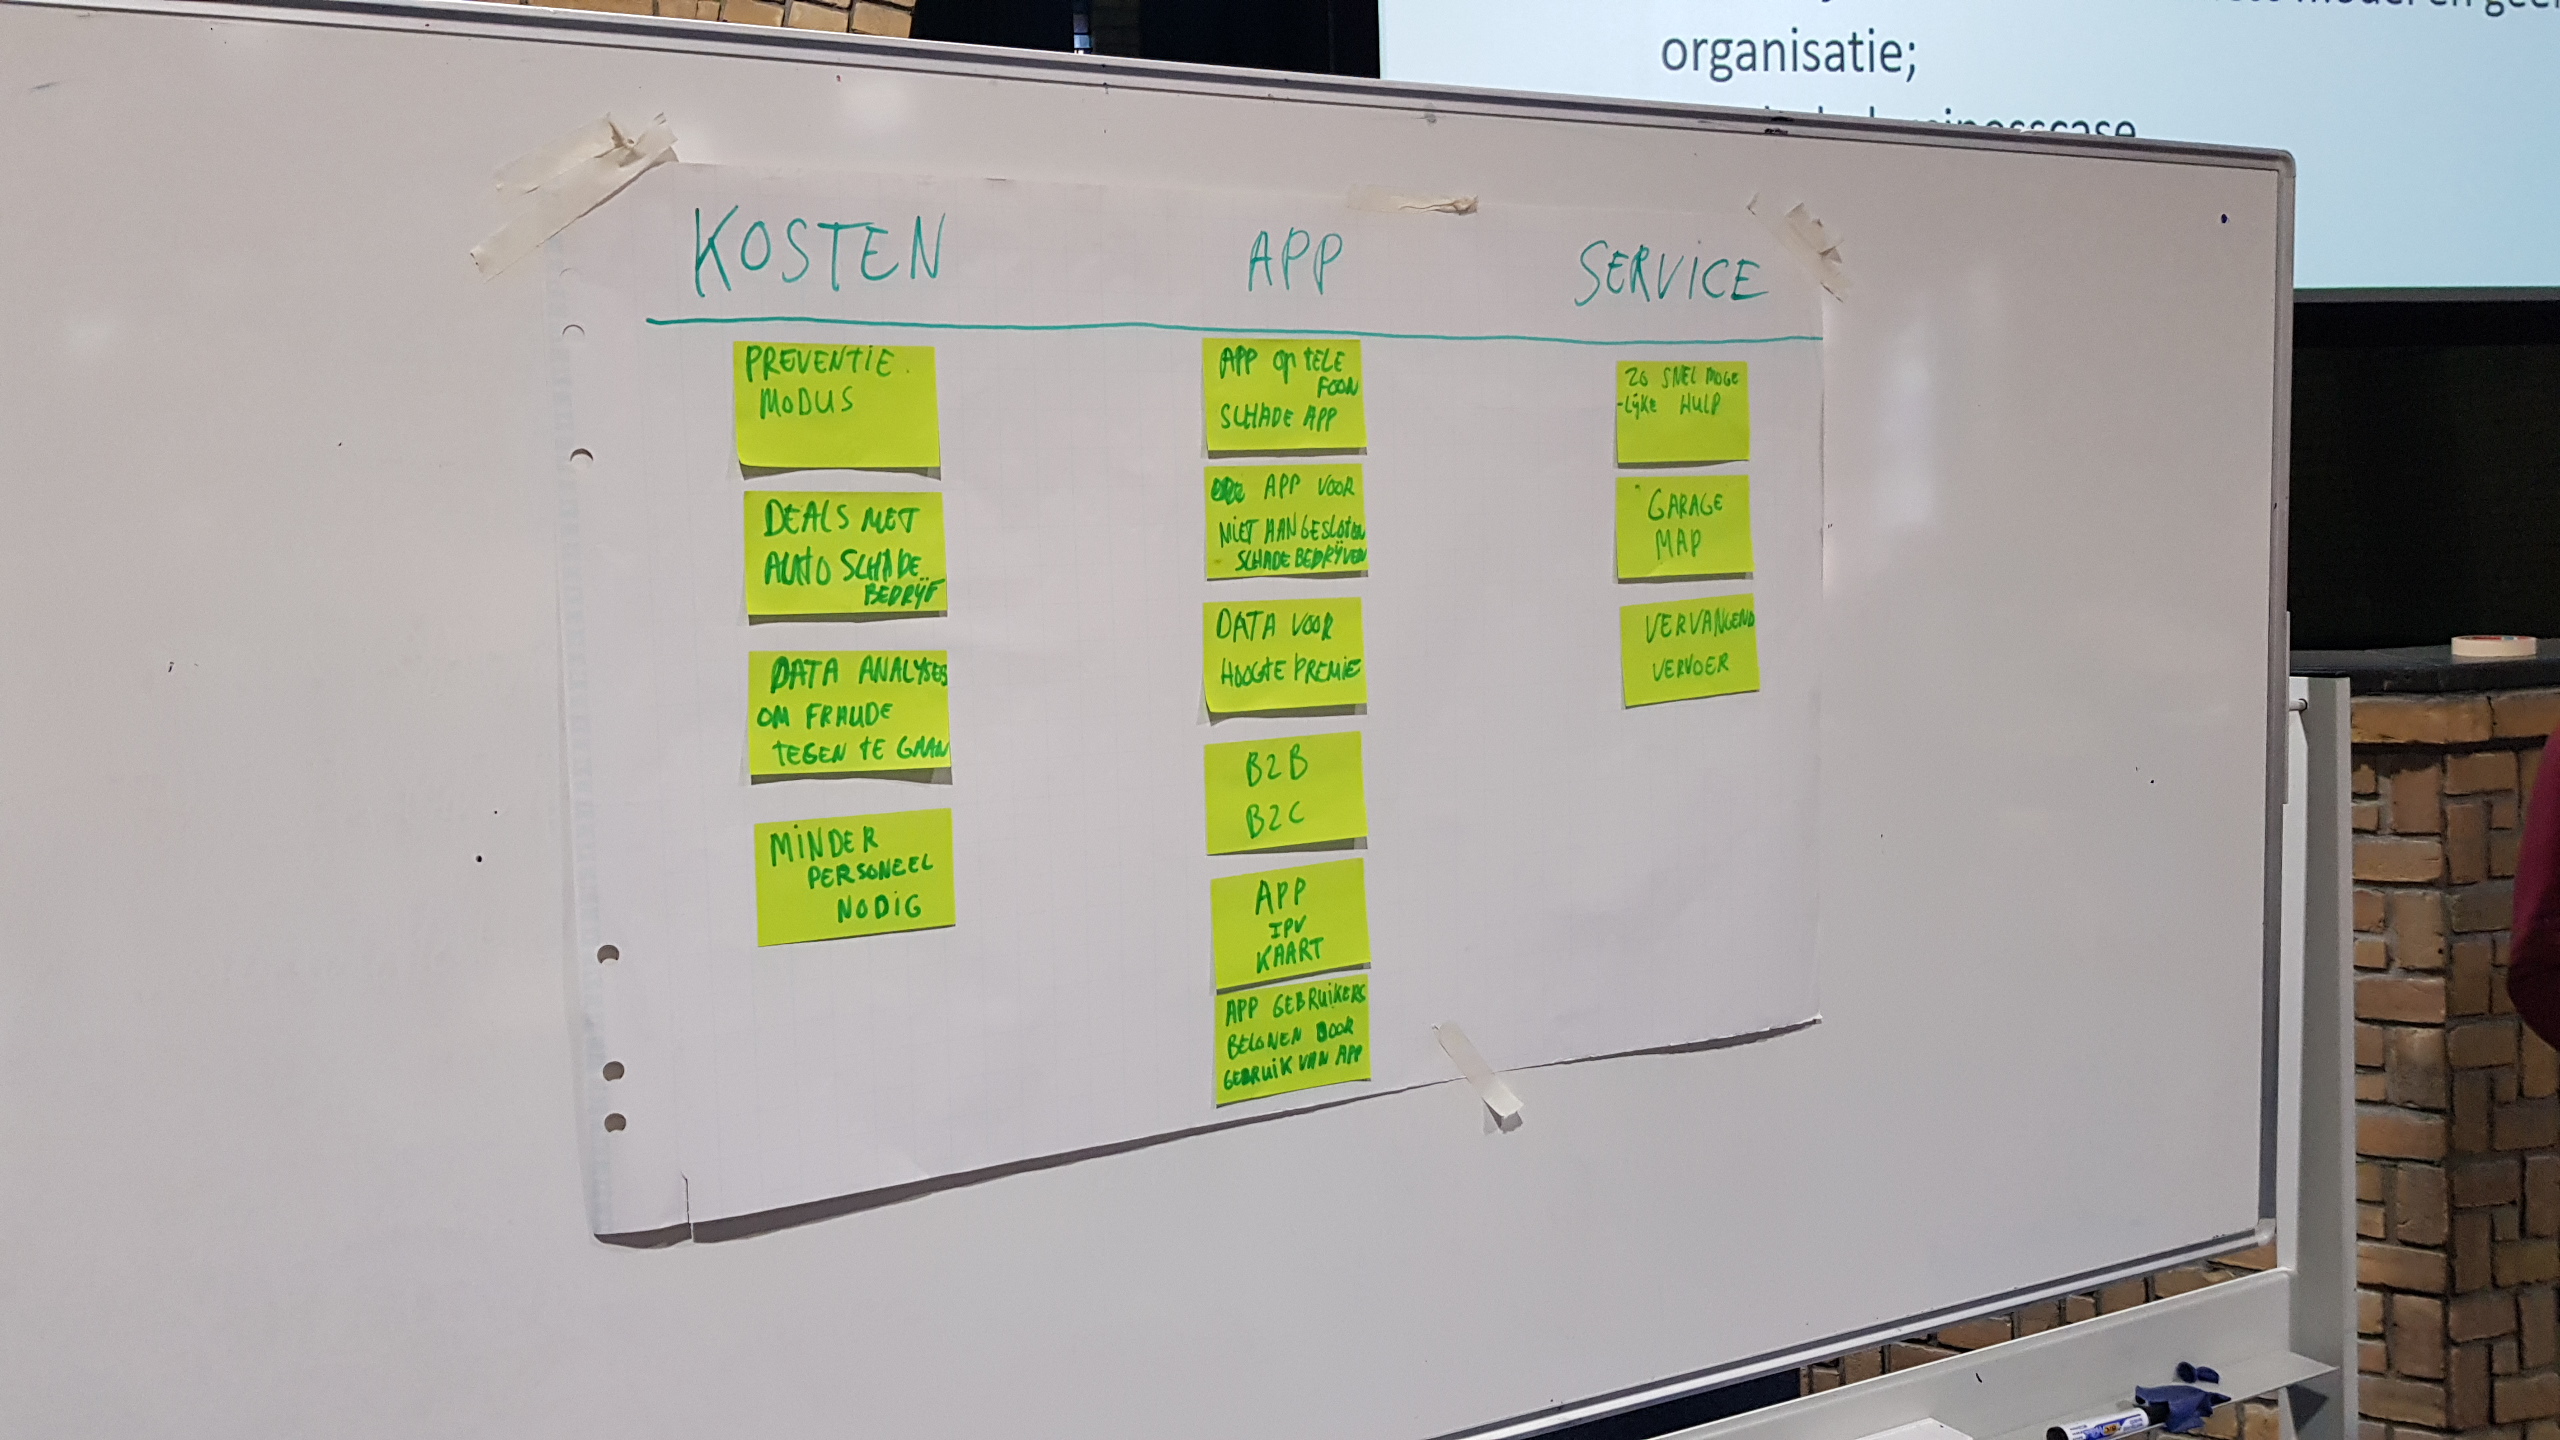 organisatie;
KOSTEN
PREVENTIE
MODUS
DEALS MET
AUTO SCHADE
BEDRIJF
DATA ANALYSES
OM FRAUDE
TEGEN TE GAAN
MINDER
PERSONEEL
NODIG
APP
APP OP TELE
FOON
SCHADE APP
APP VOOR
NIET AANGESLOTEN
SCHADEBEDRIJVEN
DATA VOOR
HOOGTE PREMIE
B2B
B2C
APP
IPV
KAART
APP GEBRUIKERS
BELONEN DOOR
GEBRUIK VAN APP
SERVICE
ZO SNEL MOGE
-LIJKE HULP
GARAGE
MAP
VERVANGEND
VERVOER